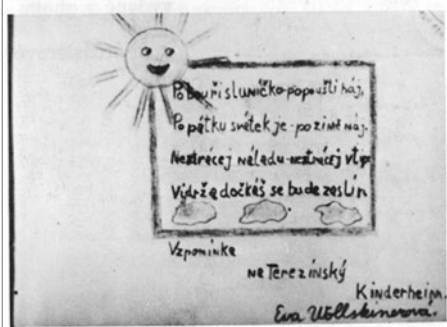 Po bouři sluníčko popouští háj,
Po pátku svátek je - po zimě máj.
Neztrácej náladu - neztrácej vtip
Vydrž a dočkáš se bude zas líp
Vzpomínka
na Terezínský
Kinderheim.
Eva Wollsteinerová.